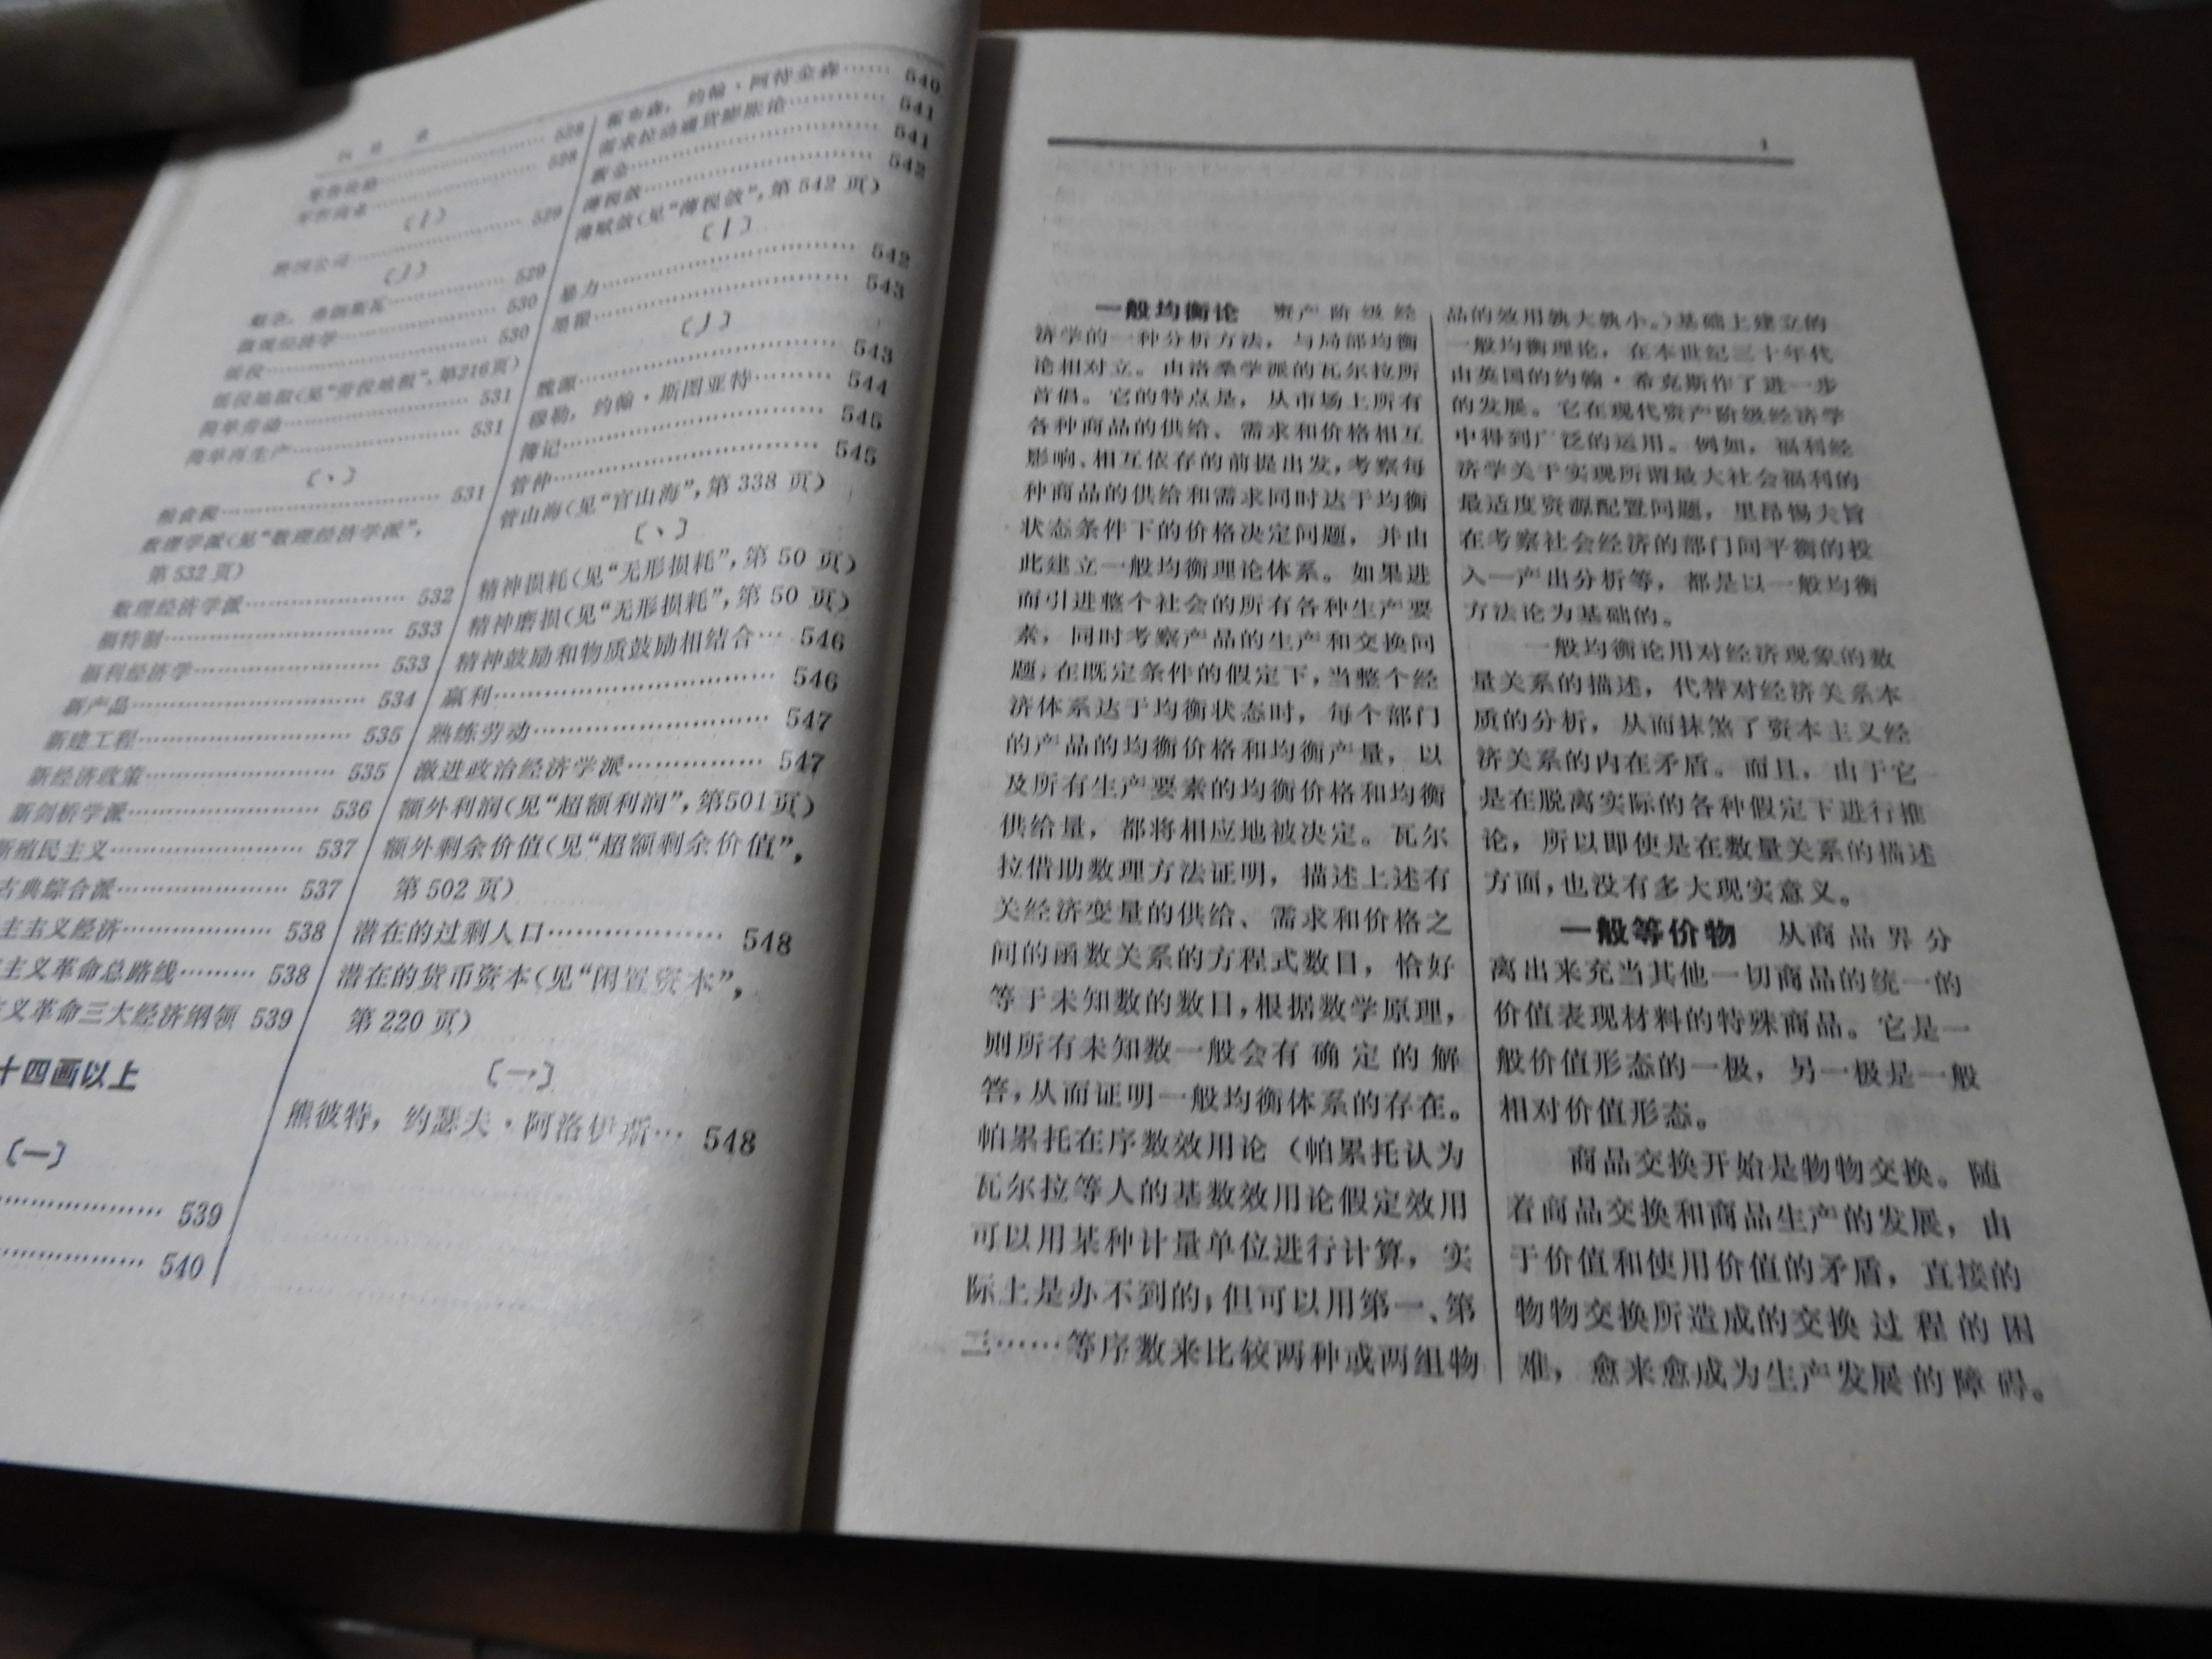 528
528
零售价格
零售商业
〔丨〕
跨国公司…… 529
〔丿〕
魁奈，弗朗斯瓦…… 529
微观经济学…… 530
徭役…… 530
徭役地租(见“劳役地租”，第216页)
简单劳动…… 531
简单再生产…… 531
〔丶〕
粮食税…… 531
数理学派(见“数理经济学派”，
第532页)
数理经济学派…… 532
福特制…… 533
福利经济学…… 533
新产品…… 534
新建工程…… 535
新经济政策…… 535
新剑桥学派…… 536
新殖民主义…… 537
古典综合派…… 537
主主义经济…… 538
主义革命总路线…… 538
义革命三大经济纲领 539
十四画以上
〔一〕
…… 539
…… 540
霍布森，约翰·阿特金森…… 540
需求拉动通货膨胀论…… 541
薪金…… 541
薄税敛…… 542
薄赋敛(见“薄税敛”，第542页)
〔丨〕
暴力…… 542
墨翟…… 543
〔丿〕
魏源…… 543
穆勒，约翰·斯图亚特…… 544
簿记…… 545
管仲…… 545
管山海(见“官山海”，第338页)
〔丶〕
精神损耗(见“无形损耗”，第50页)
精神磨损(见“无形损耗”，第50页)
精神鼓励和物质鼓励相结合… 546
赢利…… 546
熟练劳动…… 547
激进政治经济学派…… 547
额外利润(见“超额利润”，第501页)
额外剩余价值(见“超额剩余价值”，
第502页)
潜在的过剩人口…… 548
潜在的货币资本(见“闲置资本”，
第220页)
〔㇇〕
熊彼特，约瑟夫·阿洛伊斯… 548
1
一般均衡论 资产阶级经
济学的一种分析方法，与局部均衡
论相对立。由洛桑学派的瓦尔拉所
首倡。它的特点是，从市场上所有
各种商品的供给、需求和价格相互
影响、相互依存的前提出发，考察每
种商品的供给和需求同时达于均衡
状态条件下的价格决定问题，并由
此建立一般均衡理论体系。如果进
而引进整个社会的所有各种生产要
素，同时考察产品的生产和交换问
题，在既定条件的假定下，当整个经
济体系达于均衡状态时，每个部门
的产品的均衡价格和均衡产量，以
及所有生产要素的均衡价格和均衡
供给量，都将相应地被决定。瓦尔
拉借助数理方法证明，描述上述有
关经济变量的供给、需求和价格之
间的函数关系的方程式数目，恰好
等于未知数的数目，根据数学原理，
则所有未知数一般会有确定的解
答，从而证明一般均衡体系的存在。
帕累托在序数效用论（帕累托认为
瓦尔拉等人的基数效用论假定效用
可以用某种计量单位进行计算，实
际上是办不到的，但可以用第一、第
二……等序数来比较两种或两组物
品的效用孰大孰小。）基础上建立的
一般均衡理论，在本世纪三十年代
由英国的约翰·希克斯作了进一步
的发展。它在现代资产阶级经济学
中得到广泛的运用。例如，福利经
济学关于实现所谓最大社会福利的
最适度资源配置问题，里昂惕夫旨
在考察社会经济的部门间平衡的投
入—产出分析等，都是以一般均衡
方法论为基础的。
一般均衡论用对经济现象的数
量关系的描述，代替对经济关系本
质的分析，从而抹煞了资本主义经
济关系的内在矛盾。而且，由于它
是在脱离实际的各种假定下进行推
论，所以即使是在数量关系的描述
方面，也没有多大现实意义。
一般等价物 从商品界分
离出来充当其他一切商品的统一的
价值表现材料的特殊商品。它是一
般价值形态的一极，另一极是一般
相对价值形态。
商品交换开始是物物交换。随
着商品交换和商品生产的发展，由
于价值和使用价值的矛盾，直接的
物物交换所造成的交换过程的困
难，愈来愈成为生产发展的障碍。